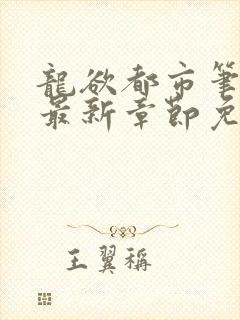 龍欲都市筆
最新章節免
王翼稱